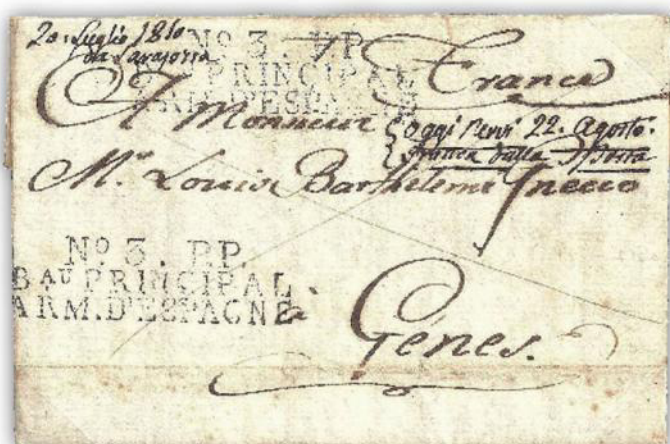 20. Luglio 1810
da Saragozza
Nº 3. P.P.
Bᴬᵁ PRINCIPAL
ARM. D'ESPAGNE
France
A Monsieur
oggi 22. Agosto.
Mʳ. Louis Barthelemi Gnecco
Nº 3. P.P.
Bᴬᵁ PRINCIPAL
ARM. D'ESPAGNE
Genes.